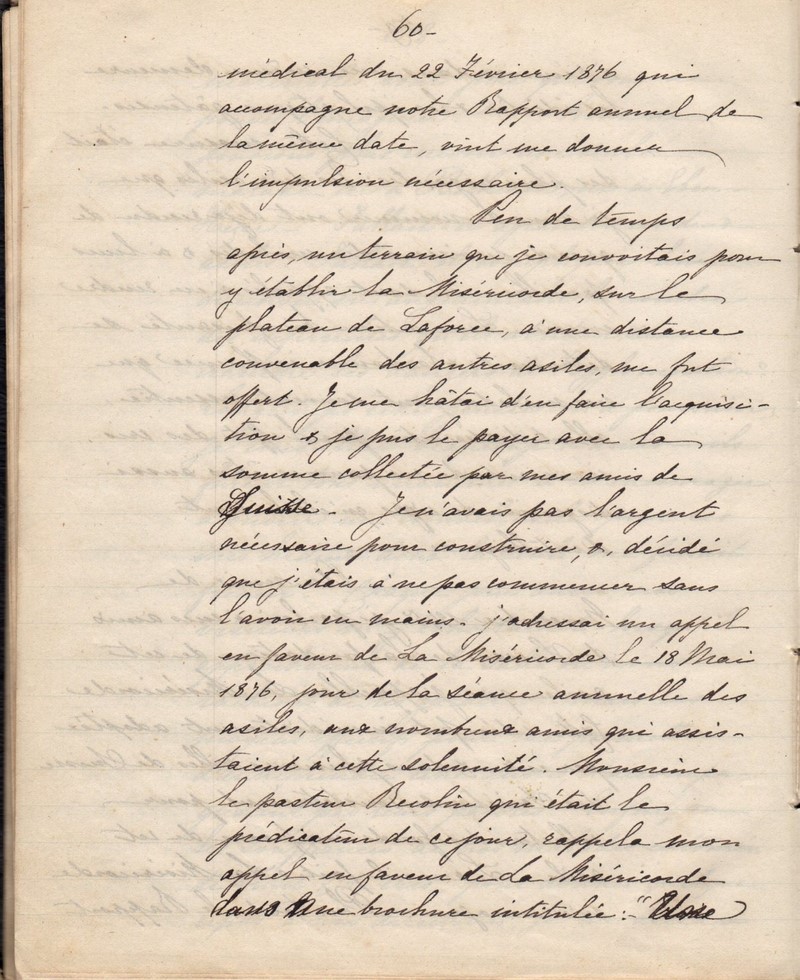 60-
médical du 22 Février 1876 qui
accompagne notre Rapport annuel de
la même date, vint me donner
l'impulsion nécessaire.
Peu de temps
après, un terrain que je convoitais pour
y établir la Miséricorde, sur le
plateau de Laforce, à une distance
convenable des autres asiles, me fut
offert. Je me hâtai d'en faire l'acquisi-
tion & je pus le payer avec la
somme collectée par mes amis de
Suisse - Je n'avais pas l'argent
nécessaire pour construire, &, décidé
que j'étais à ne pas commencer sans
l'avoir en mains - j'adressai un appel
en faveur de La Miséricorde le 18 Mai
1876, jour de la séance annuelle des
asiles, aux nombreux amis qui assis-
taient à cette solennité. Monsieur
le pasteur Recolin qui était le
prédicateur de ce jour, rappela mon
appel en faveur de La Miséricorde
dans Une brochure intitulée :- "Une